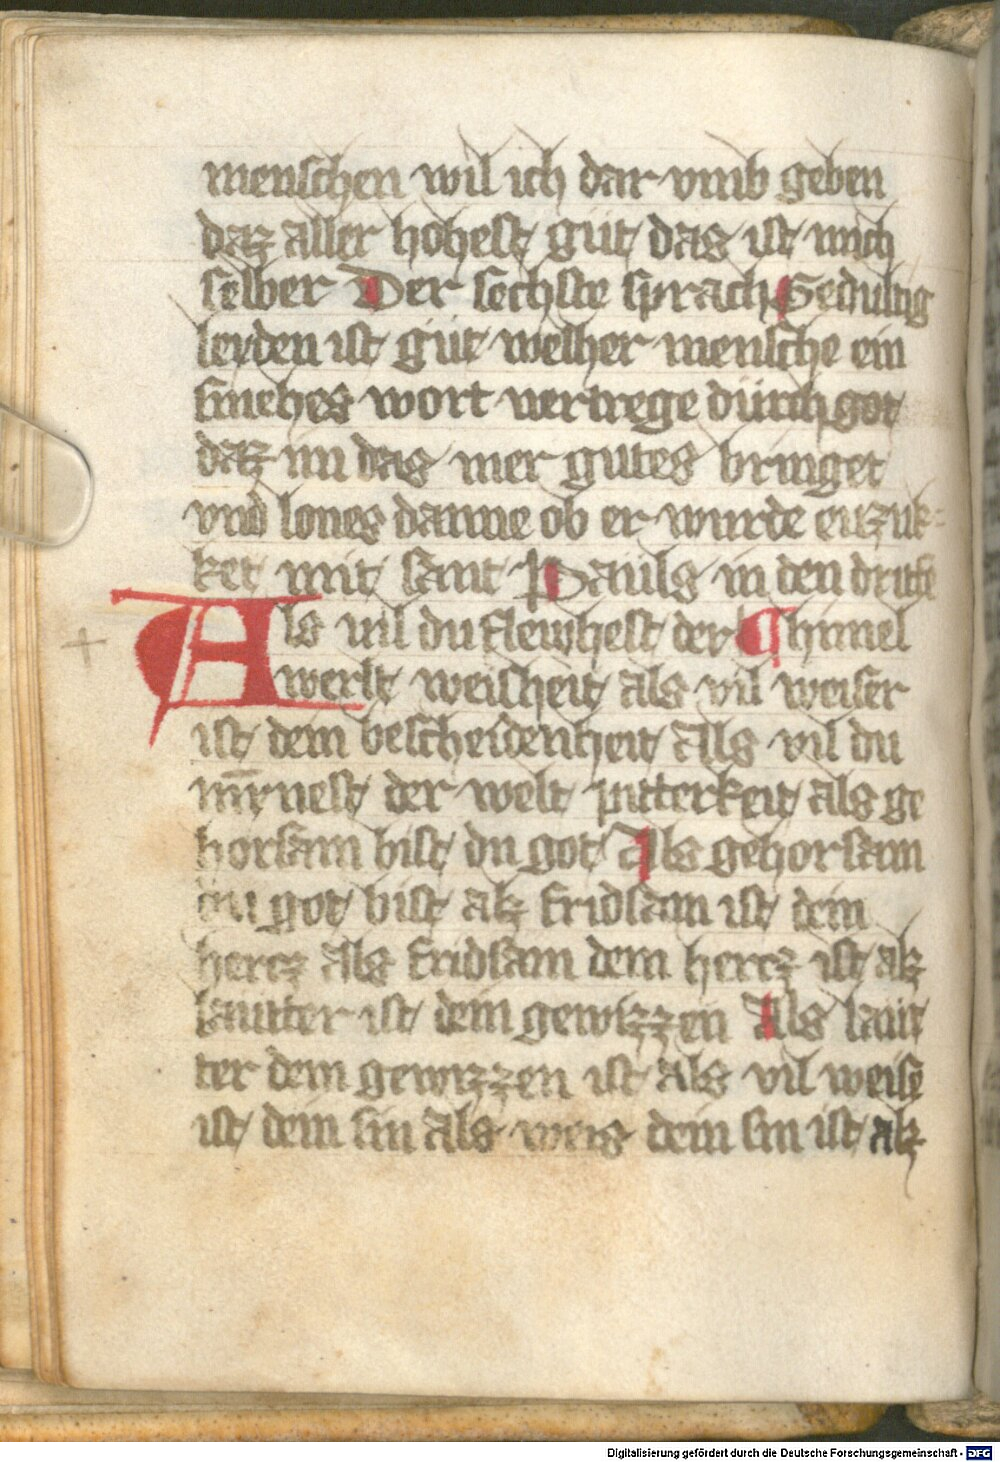 menschen wil ich dar vmb geben
daz aller hohest gut das ist mich
selber Der sechste sprach Gedultig
leyden ist gut welher mensche ein
smehes wort vertrege durch got
daz im das mer gutes bringet
vnd lones danne ob er wurde enzuk=
ket mit sant Pauls in den dritten
Als vil du flewhest der ¶ himel
werlt weisheit als vil weiser
ist dein bescheidenheit Als vil du
mynnest der welt pitterkeit als ge
horsam bist du got Als gehorsam
du got bist alz fridsam ist dein
hercz Als fridsam dein hercz ist alz
lautter ist dein gewizzen Als laut
ter dein gewizzen ist als vil weise
ist dein sin Als weis dein sin ist alz
Digitalisierung gefördert durch die Deutsche Forschungsgemeinschaft - DFG